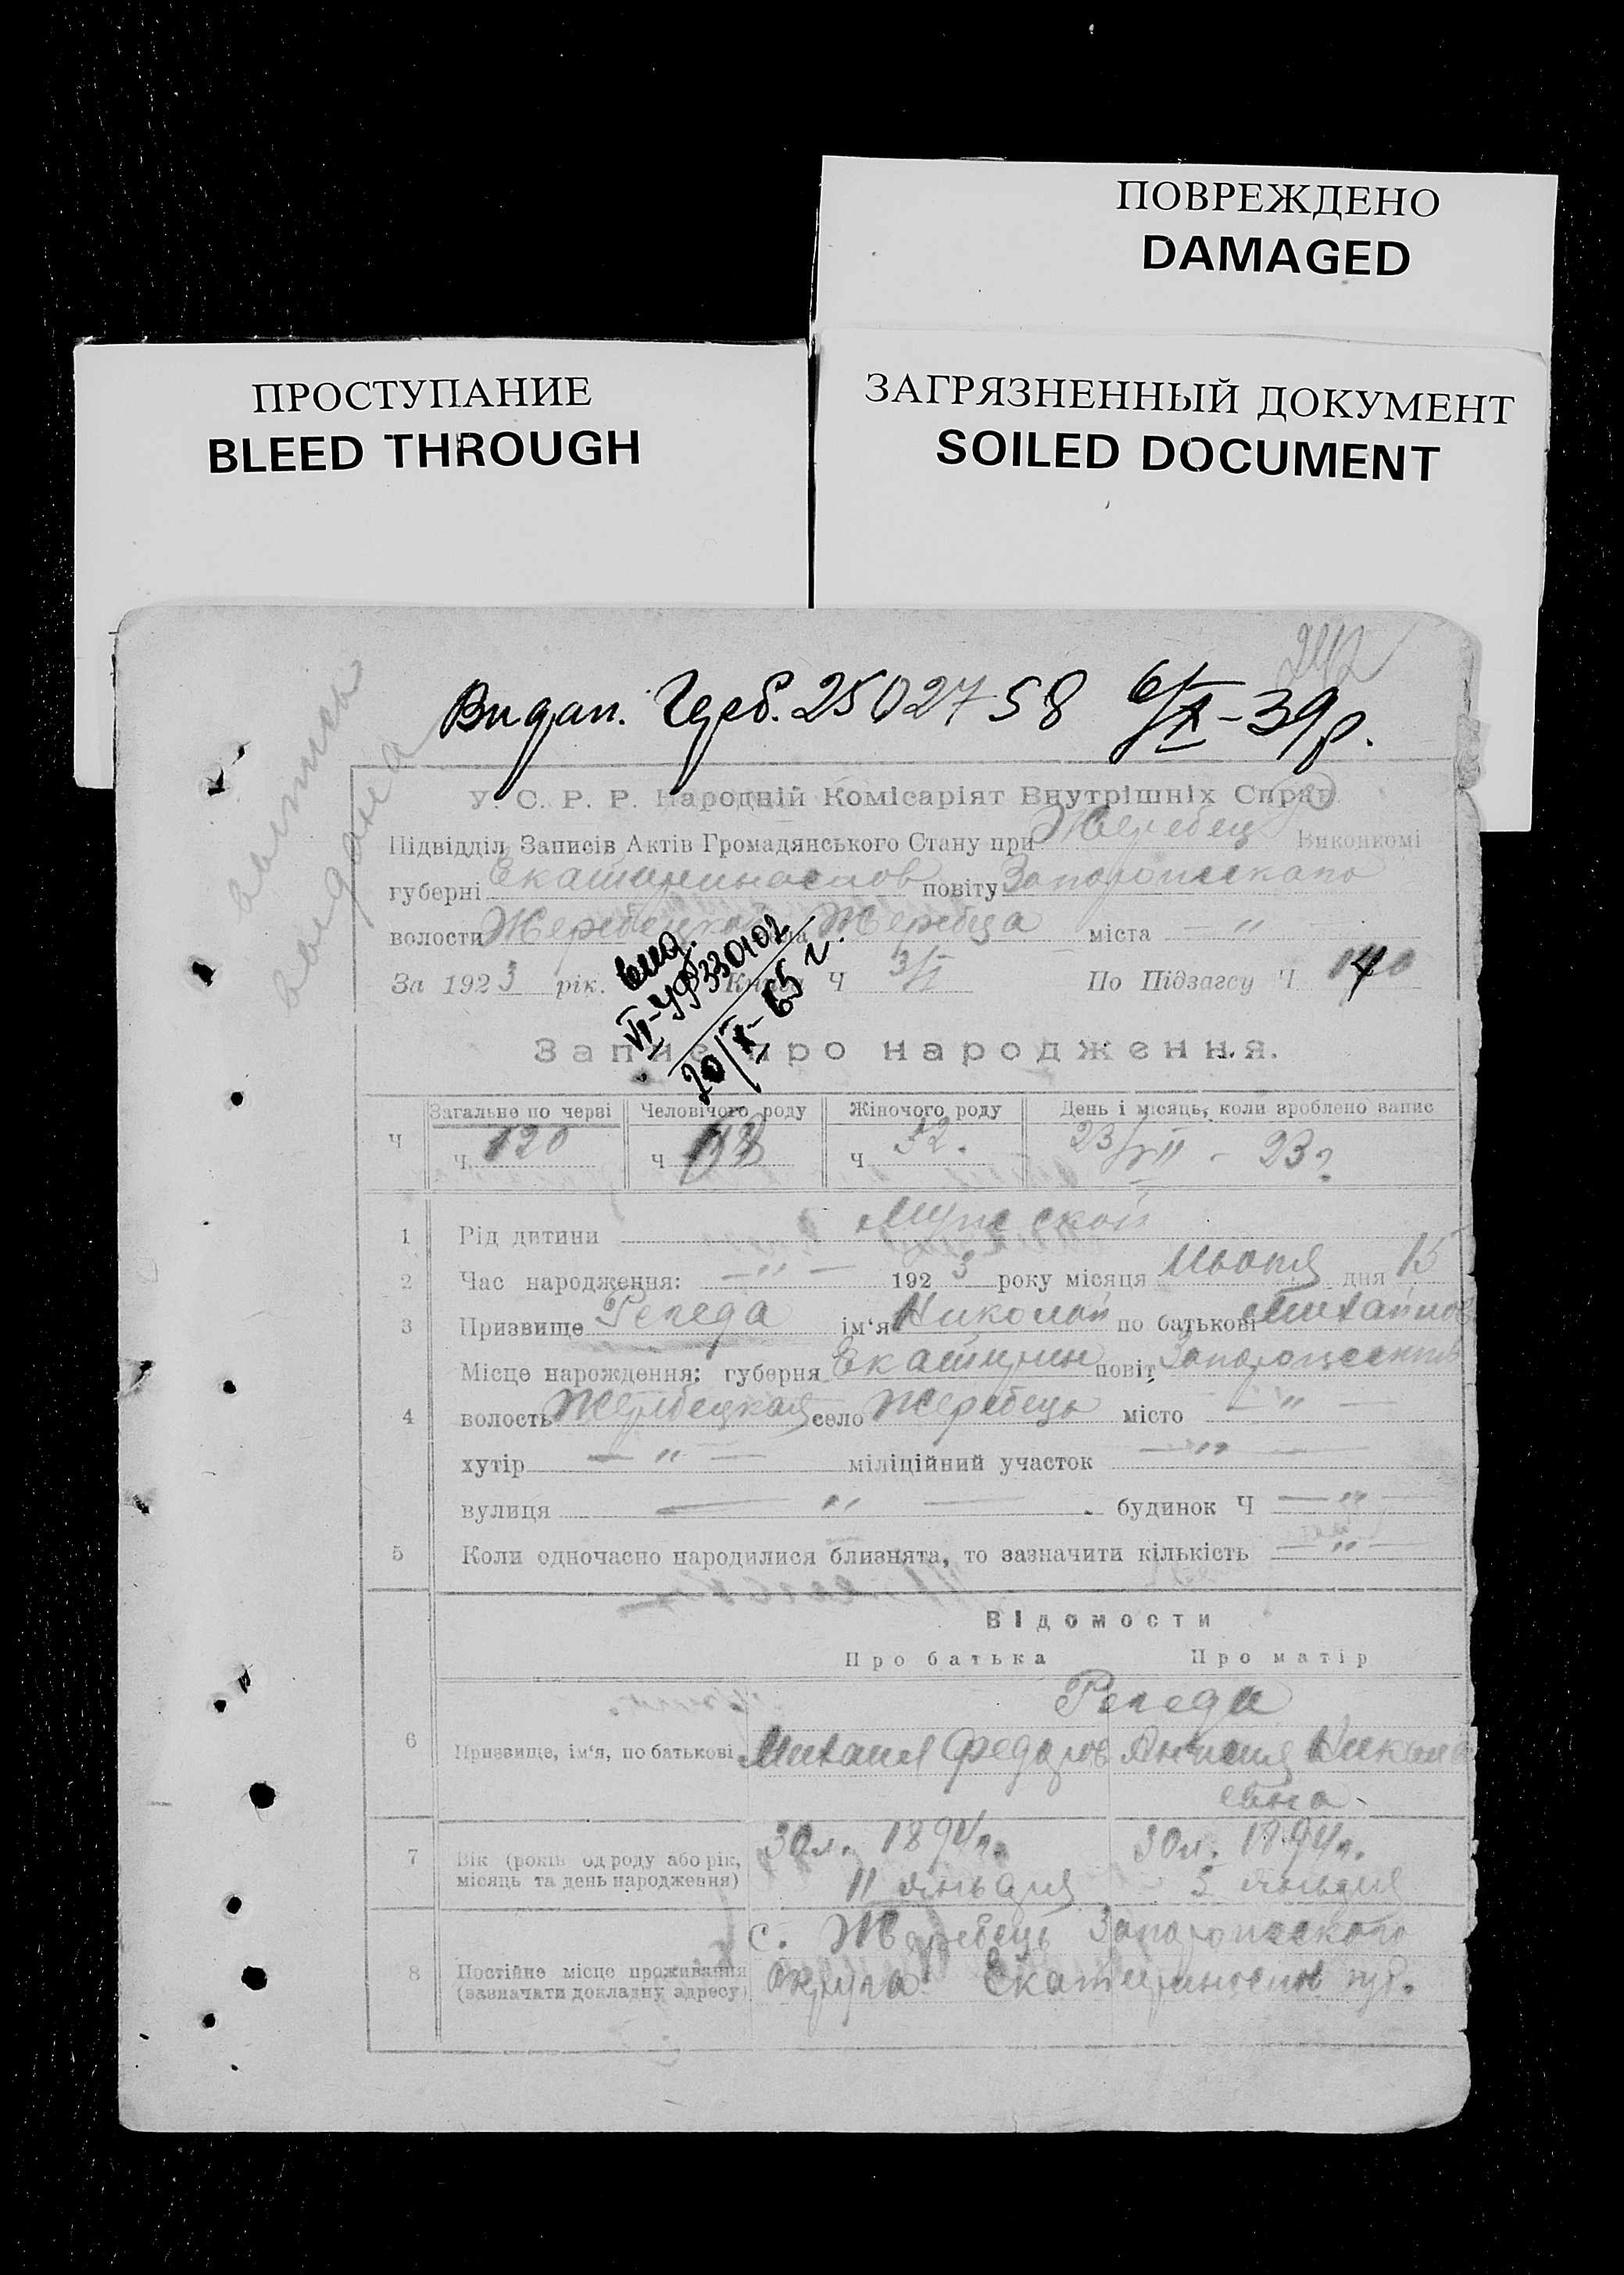 ПОВРЕЖДЕНО
DAMAGED
ПРОСТУПАНИЕ
BLEED THROUGH
ЗАГРЯЗНЕННЫЙ ДОКУМЕНТ
SOILED DOCUMENT
242
выпись
выдана
Видан. 2502758 6/X-39р.
У. С. Р. Р. Народній Комісаріят Внутрішніх Справ
Підвідділ Записів Актів Громадянського Стану при Жеребец Виконкомі
губерні Екатеринослав повіту Запорожского
волости Жеребецкой села Жеребца міста —"—
За 1923 рік. Книга Ч 3/I По Підзагсу Ч
вид.
VI-УФ 330102
20/X-65 г.
Запис про народження.
Загальне по черві Человічого роду Жіночого роду День і місяць, коли зроблено запис
Ч Ч 120 Ч Ч 52. 23/VII - 23 г
1 Рід дитини Мужеской
2 Час народження: —"— 1923 року місяця Июня дня 15
3 Призвище Репеда ім'я Николай по батькові Михайлов
Місце народження: губерня Екатерин повіт
4 волость Жеребецкая село Жеребець місто —"—
хутір —"— міліційний участок —"—
вулиця —"— будинок Ч —"—
5 Коли одночасно народилися близнята, то зазначити кількість —"—
Відомости
Про батька Про матір
Репеда
6 Призвище, ім'я, по батькові Михаил Федоров Никола
евна
7 Вік (років од роду або рік, 30 л. 1894 г. 30 л. 1894 г.
місяць та день народження) 11 5
с. Жеребець Запорожского
8 Постійне місце проживання Округа Екатеринослав губ.
(зазначити докладну адресу)